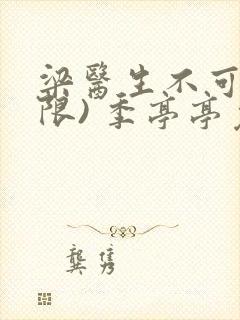 梁醫生不可
限) 季亭亭
龔雋